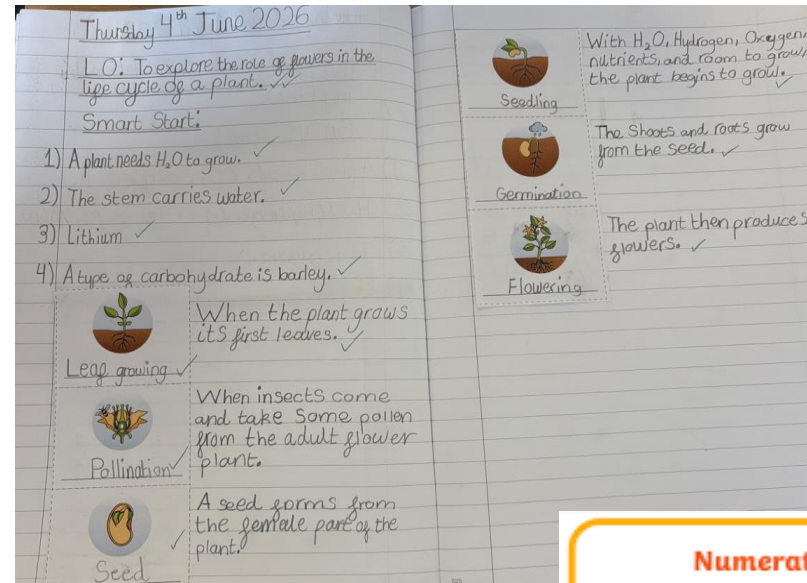 Thursday 4th June 2026
LO: To explore the role of flowers in the
life cycle of a plant.
Smart Start:
1) A plant needs H₂O to grow.
2) The stem carries water.
3) Lithium
4) A type of carbohydrate is barley.
When the plant grows
its first leaves.
Leaf growing
When insects come
and take some pollen
from the adult flower
plant.
Pollination
A seed forms from
the female part of the
plant.
Seed
With H₂O, Hydrogen, Oxygen,
nutrients, and room to grow,
the plant begins to grow.
Seedling
The Shoots and roots grow
from the seed.
Germination
The plant then produces
flowers.
Flowering